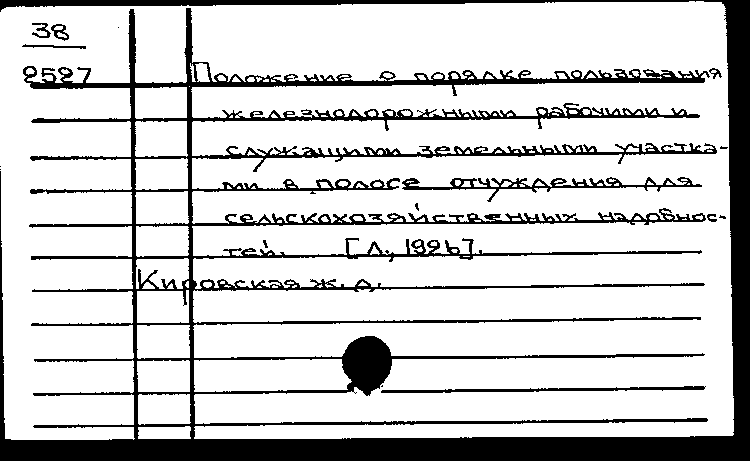 38
2527
Положение о порядке пользования
железнодорожными рабочими и
служащими земельными участка-
ми в полосе отчуждения для
сельскохозяйственных надобнос-
тей. [Л., 1926].
Кировская ж. д.